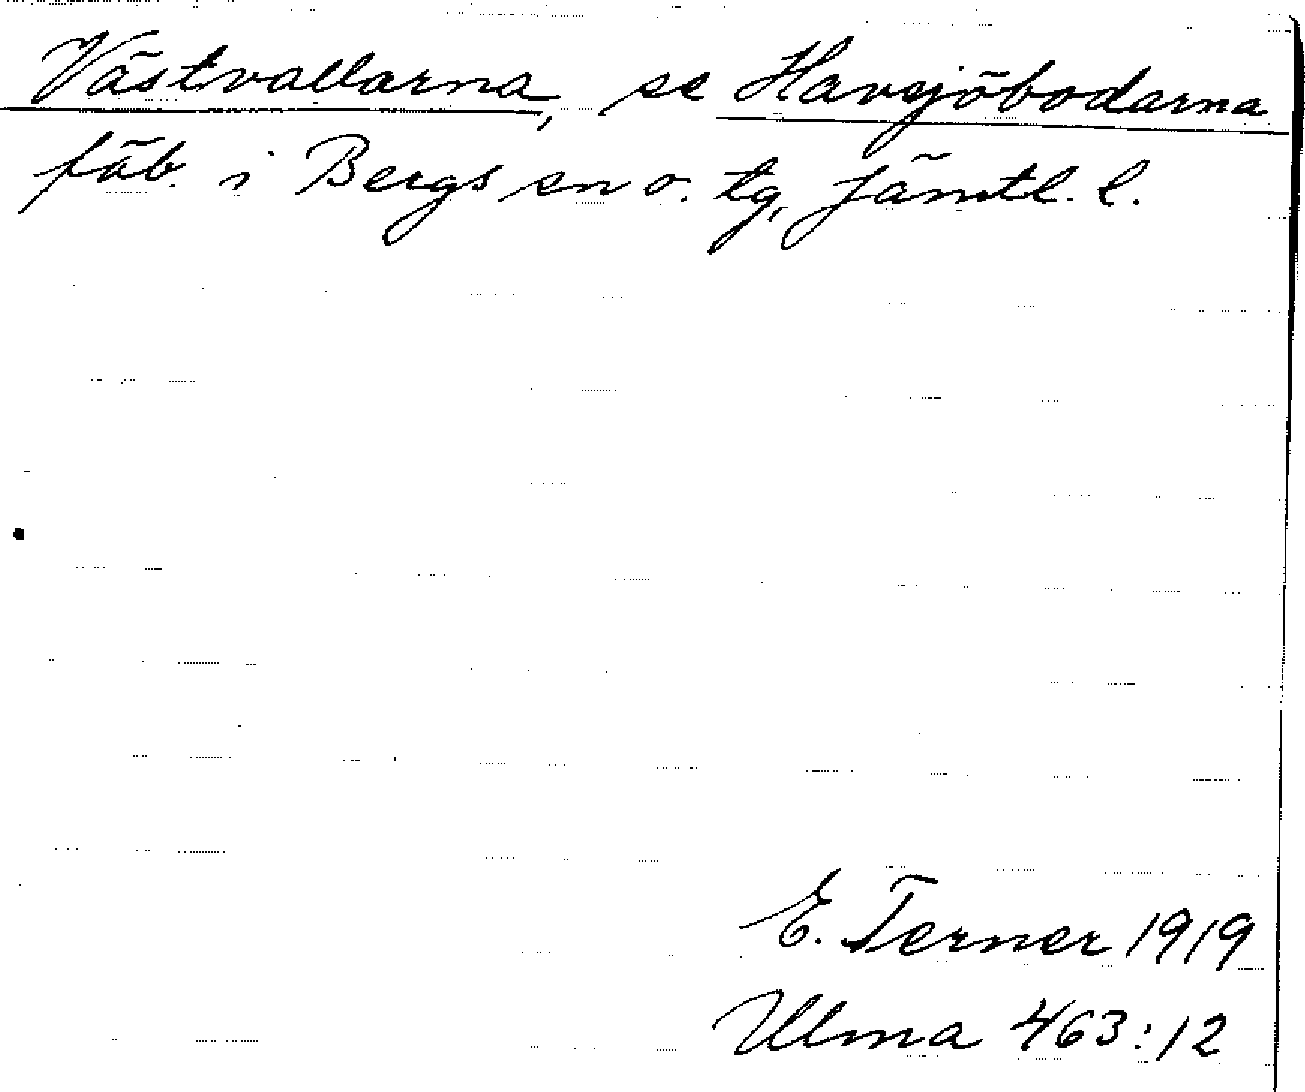 Västvallarna, se Havsjöbodarna
fäb. i Bergs sn o. tg, Jämtl. l.
E. Terner 1919
Ulma 463:12